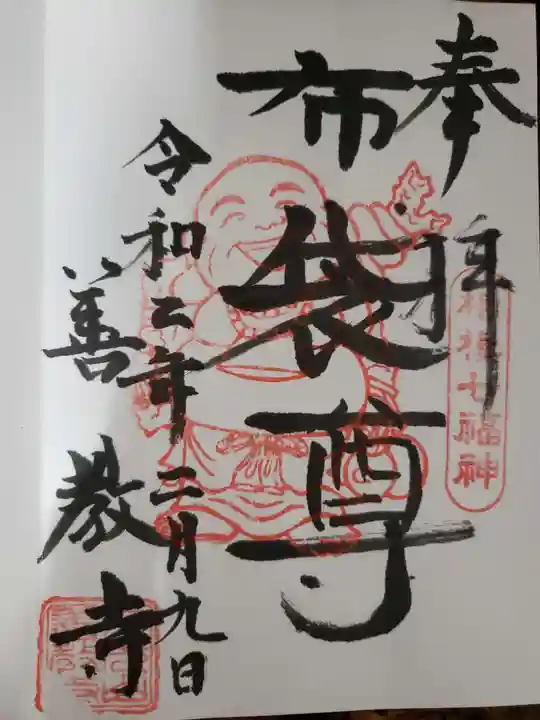 奉拝
箱根七福神
布袋尊
令和二年二月九日
善教寺